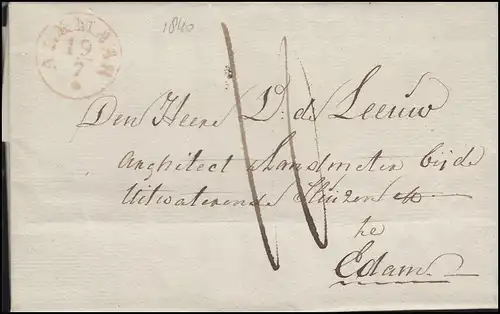 1840
ALKMAAR
19
7
Den Heere D. de Leeuw
Architect & Landmeter bij de
Uitwaterende Sluizen &c
te
Edam